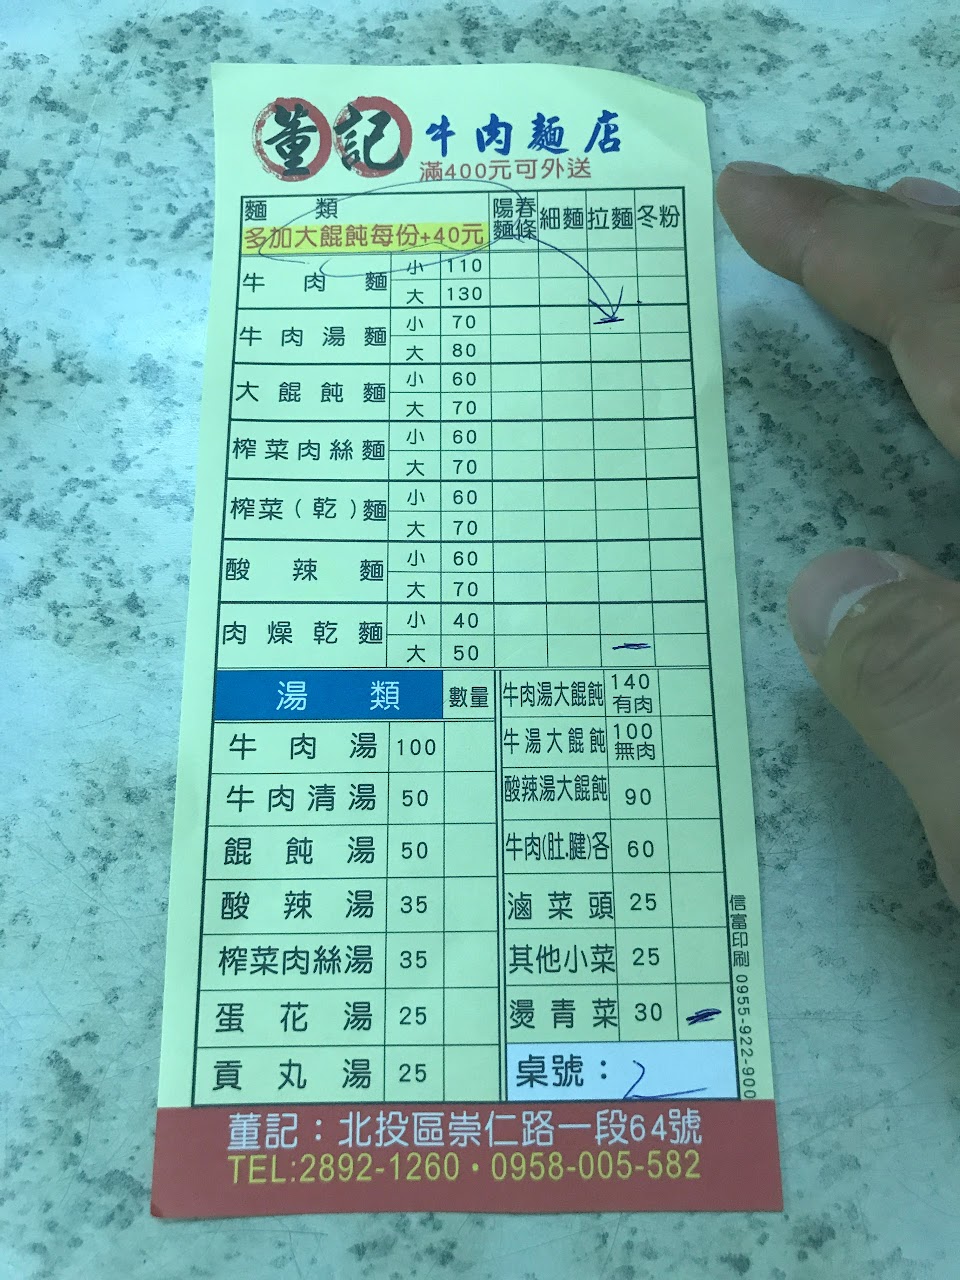 董記 牛肉麵店
滿400元可外送
麵類 陽春麵條 細麵 拉麵 冬粉
多加大餛飩每份+40元
牛肉麵 小 110
大 130
牛肉湯麵 小 70
大 80
大餛飩麵 小 60
大 70
榨菜肉絲麵 小 60
大 70
榨菜(乾)麵 小 60
大 70
酸辣麵 小 60
大 70
肉燥乾麵 小 40
大 50
湯類 數量
牛肉湯 100
牛肉清湯 50
餛飩湯 50
酸辣湯 35
榨菜肉絲湯 35
蛋花湯 25
貢丸湯 25
牛肉湯大餛飩 140 有肉
牛湯大餛飩 100 無肉
酸辣湯大餛飩 90
牛肉(肚.腱)各 60
滷菜頭 25
其他小菜 25
燙青菜 30
桌號：2
信富印刷 0955-922-900
董記：北投區崇仁路一段64號
TEL:2892-1260・0958-005-582